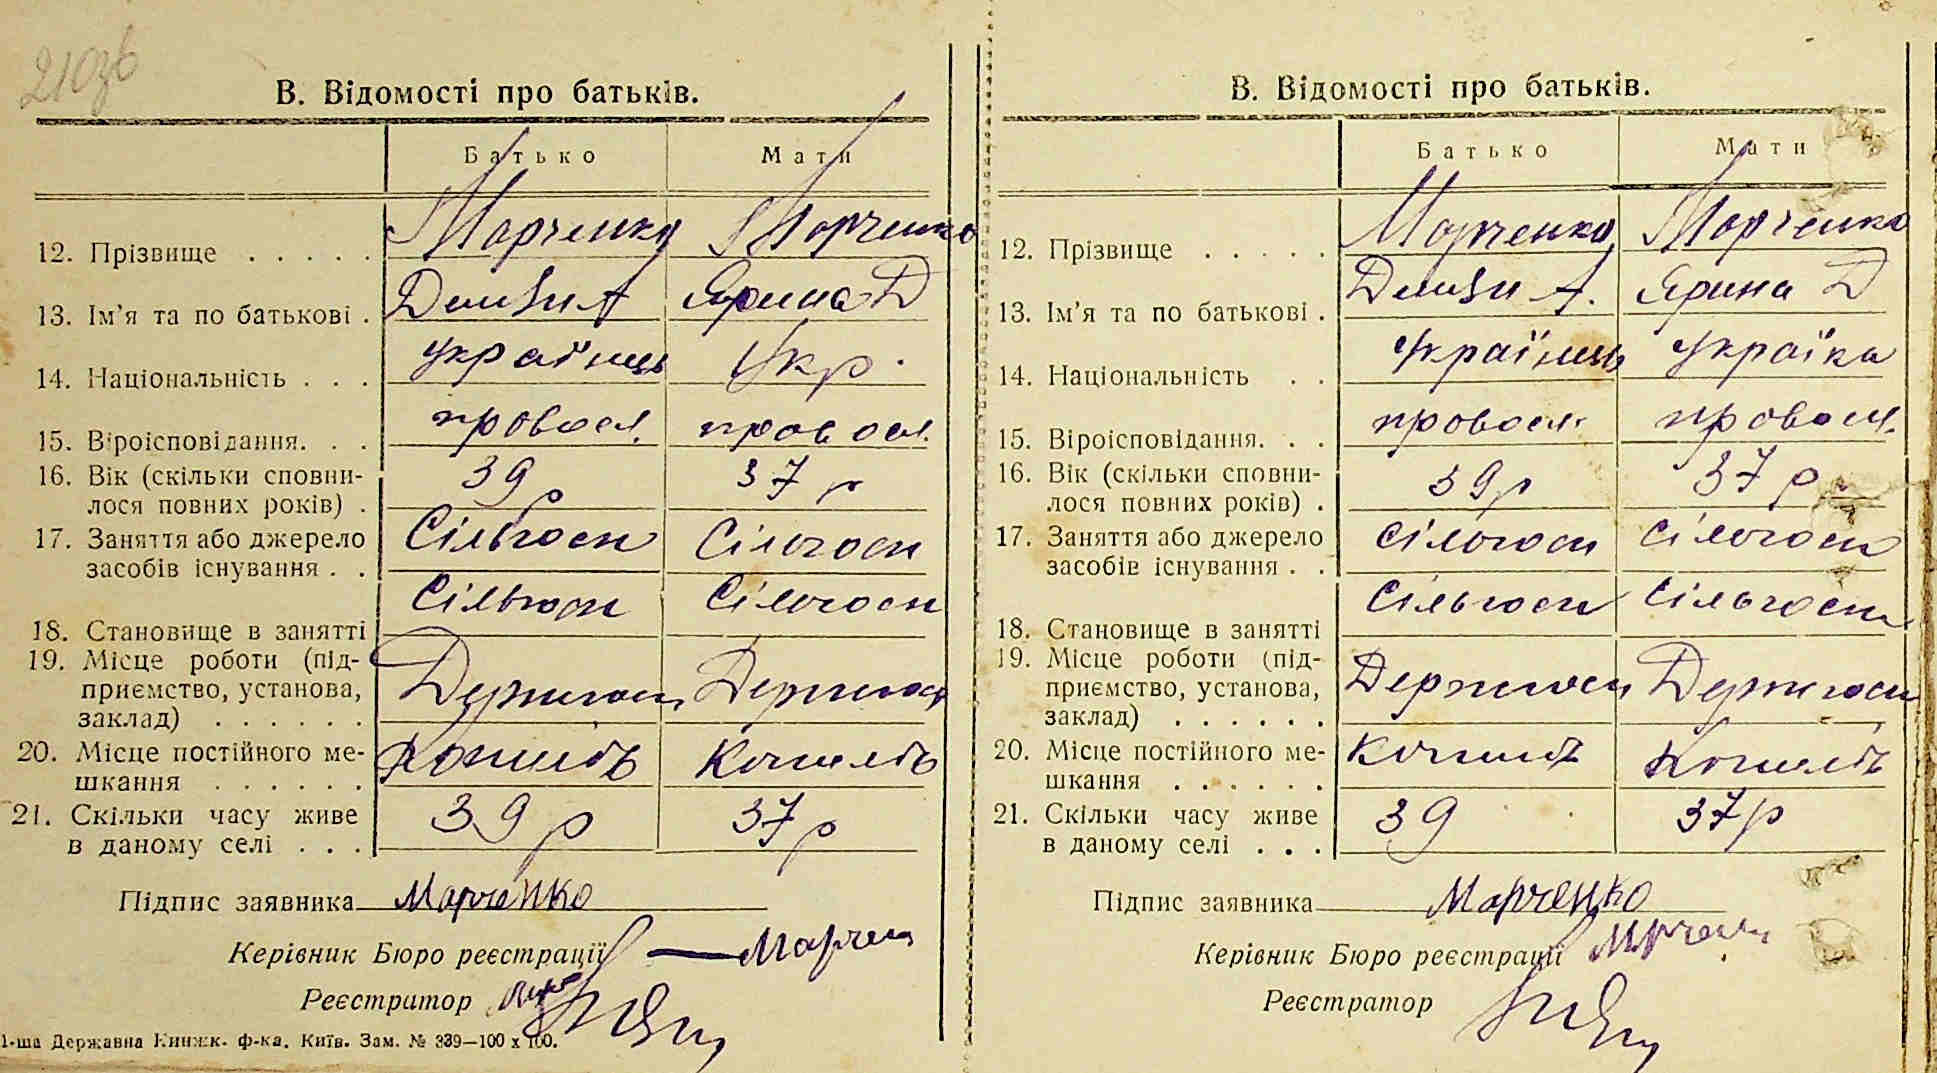 В. Відомості про батьків.
Батько Мати
12. Прізвище . . . . . Марченко Марченко
13. Ім'я та по батькові . А Ярина Д
14. Національність . . . українець Укр.
15. Віроісповідання. . . правосл. правосл.
16. Вік (скільки сповни-
лося повних років) . 39 р 37 р
17. Заняття або джерело
засобів існування . . Сільгосп Сільгосп
18. Становище в занятті Сільгосп Сільгосп
19. Місце роботи (під-
приємство, установа,
заклад) . . . . . .
20. Місце постійного ме-
шкання . . . . . .
21. Скільки часу живе
в даному селі . . . 39 р 37 р
Підпис заявника Марченко
Керівник Бюро реєстрації
Реєстратор
1-ша Державна Книжк. ф-ка. Київ. Зам. № 339—100 x 100.
В. Відомості про батьків.
Батько Мати
12. Прізвище . . . . . Марченко Марченко
13. Ім'я та по батькові . А. Ярина Д
14. Національність . . українець українка
15. Віроісповідання. . . правосл. правосл.
16. Вік (скільки сповни-
лося повних років) . 39 р 37 р
17. Заняття або джерело
засобів існування . . Сільгосп Сільгосп
18. Становище в занятті Сільгосп Сільгосп
19. Місце роботи (під-
приємство, установа,
заклад) . . . . . .
20. Місце постійного ме-
шкання . . . . . .
21. Скільки часу живе
в даному селі . . . 39 37 р
Підпис заявника Марченко
Керівник Бюро реєстрації
Реєстратор